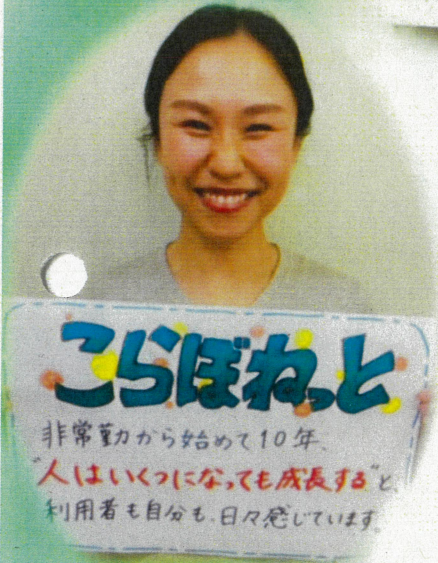 こらぼねっと
非常勤から始めて10年、
"人はいくつになっても成長する"と、
利用者も自分も、日々感じています。